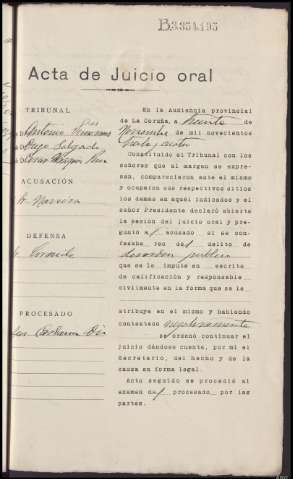 B.3.354.195
Acta de Juicio oral
TRIBUNAL
Antonio
Hugo Salgado
ACUSACIÓN
DEFENSA
PROCESADO
En la Audiencia provincial
de La Coruña, a treinta de
Noviembre de mil novecientos
treinta y cuatro
Constituido el Tribunal con los
señores que al margen se expre-
san, comparecieron ante el mismo
y ocuparon sus respectivos sitios
los demás en aquel indicados y el
señor Presidente declaró abierta
la sesión del juicio oral y pre-
guntó al acusado si se con-
fesaba reo del delito de
desorden público
que se le impute en escrito
de calificación y responsable
civilmente en la forma que se le
atribuye en el mismo y habiendo
contestado negativamente
se ordenó continuar el
juicio dándose cuenta, por mí el
Secretario, del hecho y de la
causa en forma legal.
Acto seguido se procedió al
examen del procesado por las
partes.